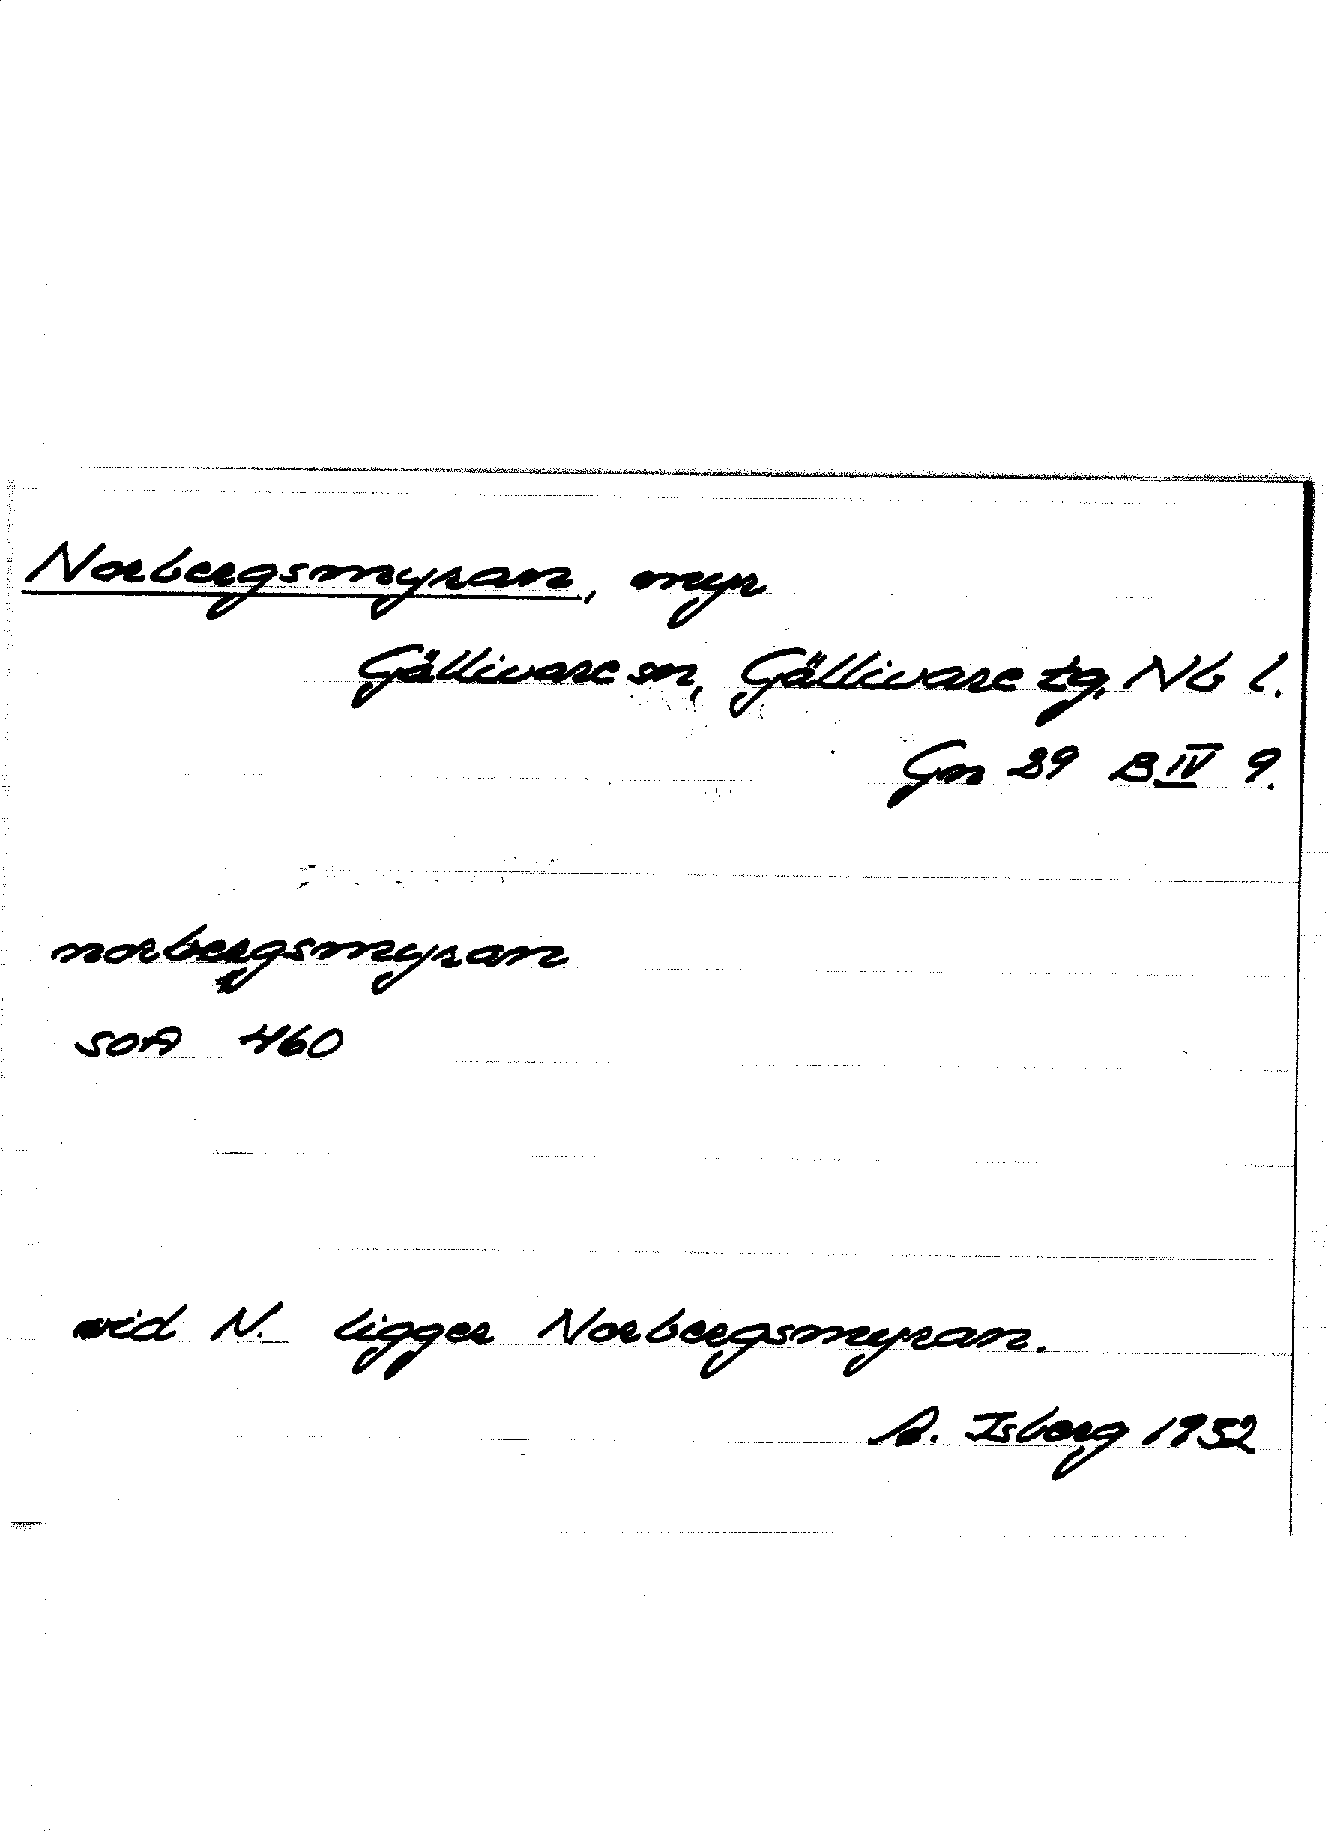 Norbergsmyran, myr
Gällivare sn, Gällivare tg. Nb l.
Gm 29 B IV 9.
norbergsmyran
SOA 460
vid N. ligger Norbergsmyran.
A. Isberg 1932